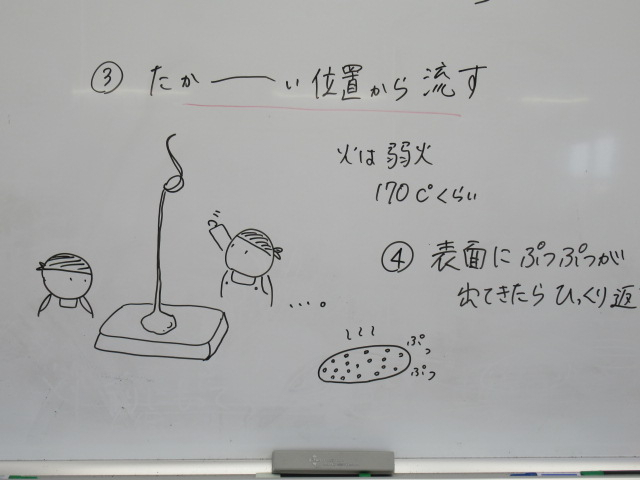 ③ たかーーい位置から流す
火は弱火
170℃くらい
④ 表面にぷつぷつが
出てきたらひっくり返
…。
ぷっ
ぷつ